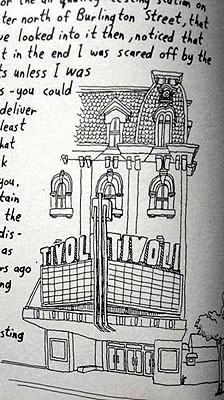 air quality testing station on
ter north of Burlington Street, that
ve looked into it then, noticed that
t in the end I was scared off by the
ts unless I was
s - you could
deliver
least
hat
k
you,
tain
the
dis-
as
rs ago
ng
sting
TIVOLI TIVOLI